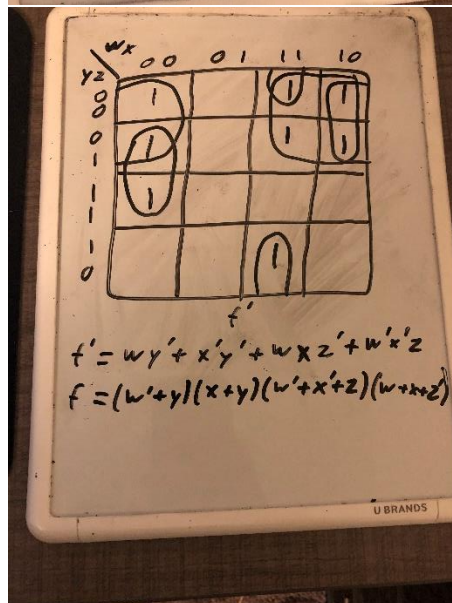 wx
00 01 11 10
yz
00 1 1 1
01 1 1 1
11 1
10 1
f'
f' = wy' + x'y' + wxz' + w'x'z
f = (w'+y)(x+y)(w'+x'+z)(w+x+z')
U BRANDS